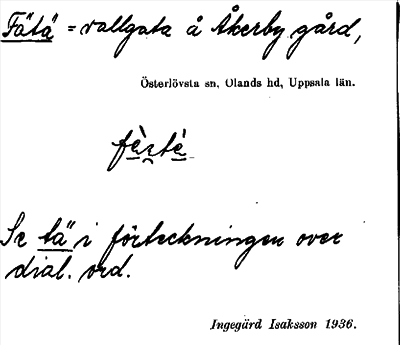 Fä"tä" = vallgata å Åkerby gård,
Österlövsta sn, Olands hd, Uppsala län.
Se tä" i förteckningen over
dial. ord.
Ingegärd Isaksson 1936.